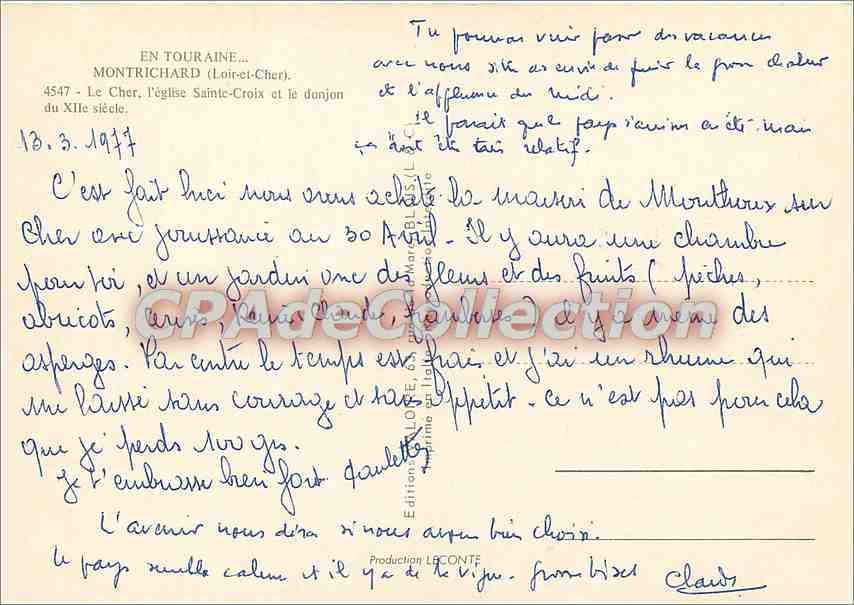 EN TOURAINE...
MONTRICHARD (Loir-et-Cher).
4547 - Le Cher, l'église Sainte-Croix et le donjon
du XIIe siècle.
13.3.1977
C'est fait Luci nous avons acheté la maison de Monthoux sur
Cher avec jouissance au 30 Avril - Il y aura une chambre
pour toi, et un jardin avec des fleurs et des fruits (pêches,
abricots, cerises, Reines Claudes, framboises) il y a même des
asperges. Par contre le temps est frais et j'ai un rhume qui
me laisse sans courage et sans appétit - ce n'est pas pour cela
que je perds 100 grs.
Je t'embrasse bien fort Paulette
L'avenir nous dira si nous avons bien choisi.
le pays semble calme et il y a de la vigne. grosses bises Claude
Tu pourras venir passer des vacances
avec nous si tu as envie de fuir la grosse chaleur
et l'affluence du midi.
il parait que le pays s'anime en été. mais
ça doit être très relatif.
Editions VALOIRE, 63, BLOIS (L. & C.)
Imprimé en Italie - Reproduction interdite
Production LECONTE
CPAdeCollection